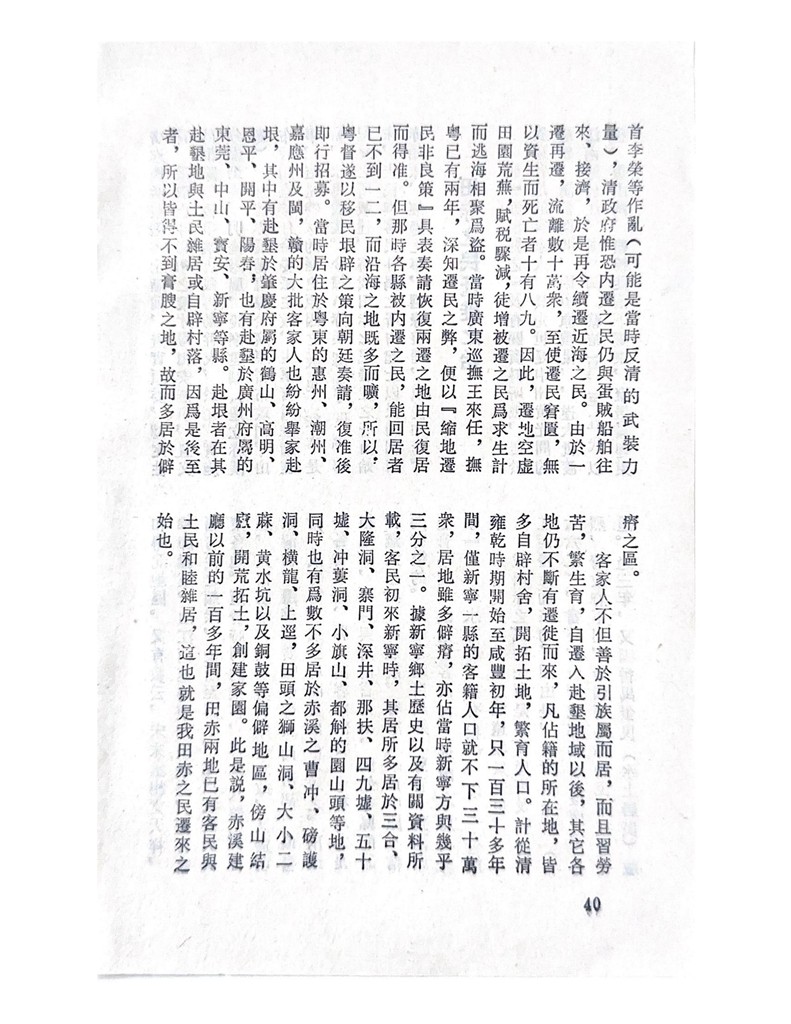 首李榮等作亂（可能是當時反清的武裝力
量），清政府惟恐內遷之民仍與蛋賊船舶往
來、接濟，於是再令續遷近海之民。由於一
遷再遷，流離數十萬衆，至使遷民窘匱，無
以資生而死亡者十有八九。因此，遷地空虛
田園荒蕪，賦税驟減，徒增被遷之民爲求生計
而逃海相聚爲盜。當時廣東巡撫王來任，撫
粵已有兩年，深知遷民之弊，便以『縮地遷
民非良策』具表奏請恢復兩遷之地由民復居
而得准。但那時各縣被內遷之民，能回居者
已不到一二，而沿海之地既多而曠，所以，
粵督遂以移民垠辟之策向朝廷奏請，復准後
即行招募。當時居住於粵東的惠州、潮州、
嘉應州及閩，贛的大批客家人也紛紛舉家赴
垠，其中有赴墾於肇慶府屬的鶴山、高明、
恩平、開平、陽春，也有赴墾於廣州府屬的
東莞、中山、寶安、新寧等縣。赴垠者在其
赴墾地與土民雜居或自辟村落，因爲是後至
者，所以皆得不到膏腴之地，故而多居於僻
瘠之區。
客家人不但善於引族屬而居，而且習勞
苦，繁生育，自遷入赴墾地域以後，其它各
地仍不斷有遷徙而來，凡佔籍的所在地，皆
多自辟村舍，開拓土地，繁育人口。計從清
雍乾時期開始至咸豐初年，只一百三十多年
間，僅新寧一縣的客籍人口就不下三十萬
衆，居地雖多僻瘠，亦佔當時新寧方與幾乎
三分之一。據新寧鄉土歷史以及有關資料所
載，客民初來新寧時，其居所多居於三合、
大隆洞、寨門、深井、那扶、四九墟、五十
墟、冲蔞洞、小旗山、都斛的園山頭等地，
同時也有爲數不多居於赤溪之曹冲、磅護
洞、橫龍、上逕，田頭之獅山洞、大小二
蔴、黄水坑以及銅鼓等偏僻地區，傍山結
廬，開荒拓土，創建家園。此是説，赤溪建
廳以前的一百多年間，田赤兩地已有客民與
土民和睦雜居，這也就是我田赤之民遷來之
始也。
40